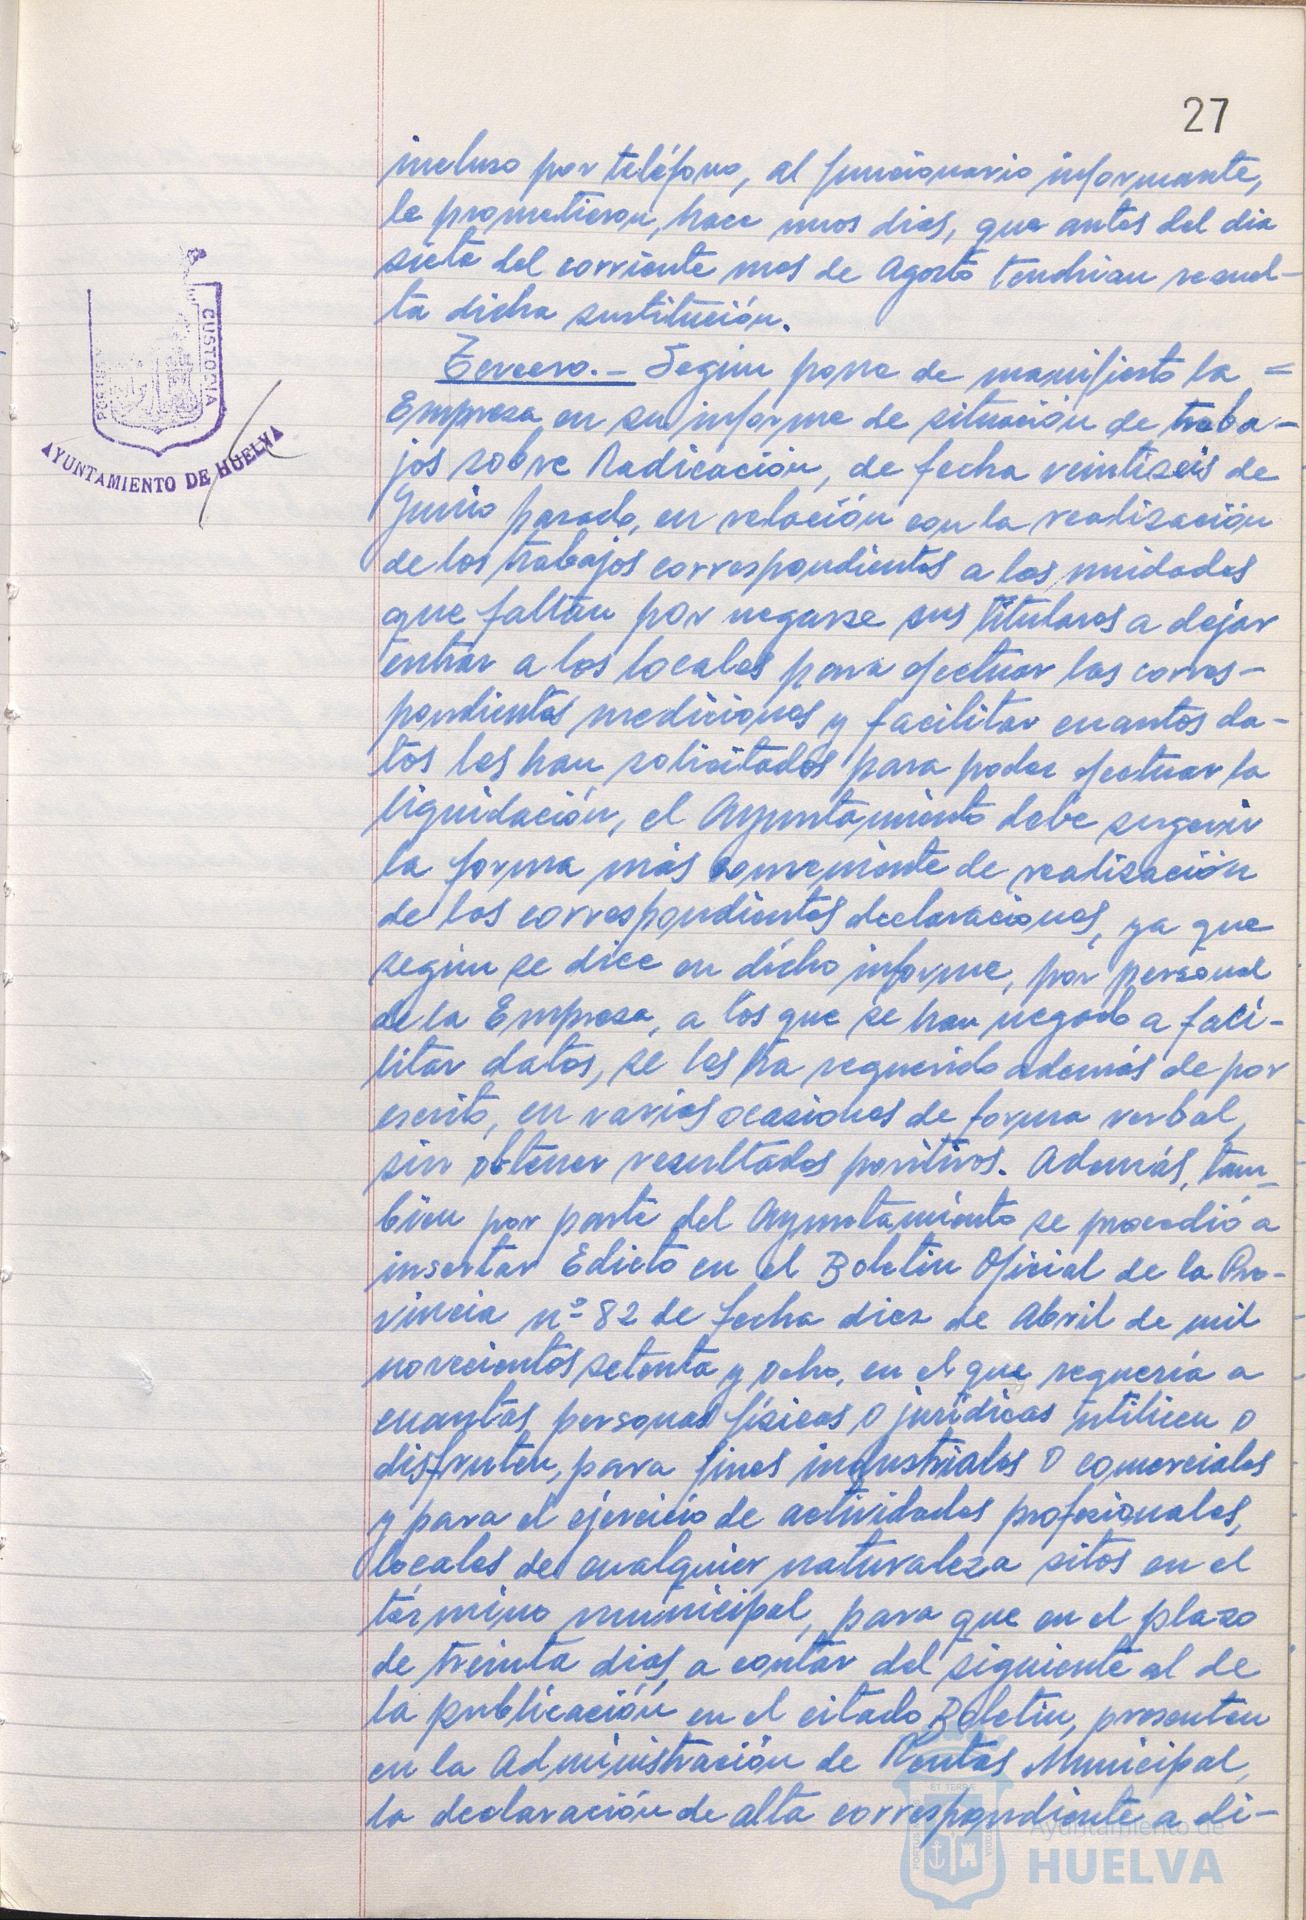 27
incluso por teléfono, al funcionario informante,
le prometieron, hace unos dias, que antes del dia
siete del corriente mes de Agosto tendrian resuel-
ta dicha sustitución.
Tercero.- Segun pone de manifiesto la =
Empresa en su informe de situación de traba-
jos sobre Radicación, de fecha veintiseis de
Junio pasado, en relación con la realización
de los trabajos correspondientes a las unidades
que faltan por negarse sus titulares a dejar
entrar a los locales para efectuar las corres-
pondientes mediciones y facilitar cuantos da-
tos les han solicitados para poder efectuar la
liquidación, el Ayuntamiento debe sugerir
la forma más conveniente de realización
de las correspondientes declaraciones, ya que
segun se dice en dicho informe, por personal
de la Empresa, a los que se han negado a faci-
litar datos, se les ha requerido además de por
escrito, en varias ocasiones de forma verbal,
sin obtener resultados positivos. Además, tam-
bien por parte del Ayuntamiento se procedió a
insertar Edicto en el Boletin Oficial de la Pro-
vincia nº 82 de fecha diez de Abril de mil
novecientos setenta y ocho, en el que requería a
cuantas personas físicas o jurídicas utilicen o
disfruten, para fines industriales o comerciales
y para el ejercicio de actividades profesionales,
locales de cualquier naturaleza sitos en el
término municipal, para que en el plazo
de treinta dias, a contar del siguiente al de
la publicación en el citado Boletin, presenten
en la Administración de Rentas Municipal,
la declaración de alta correspondiente a di-
PORTUS
CUSTODIA
AYUNTAMIENTO DE HUELVA
Ayuntamiento de
HUELVA